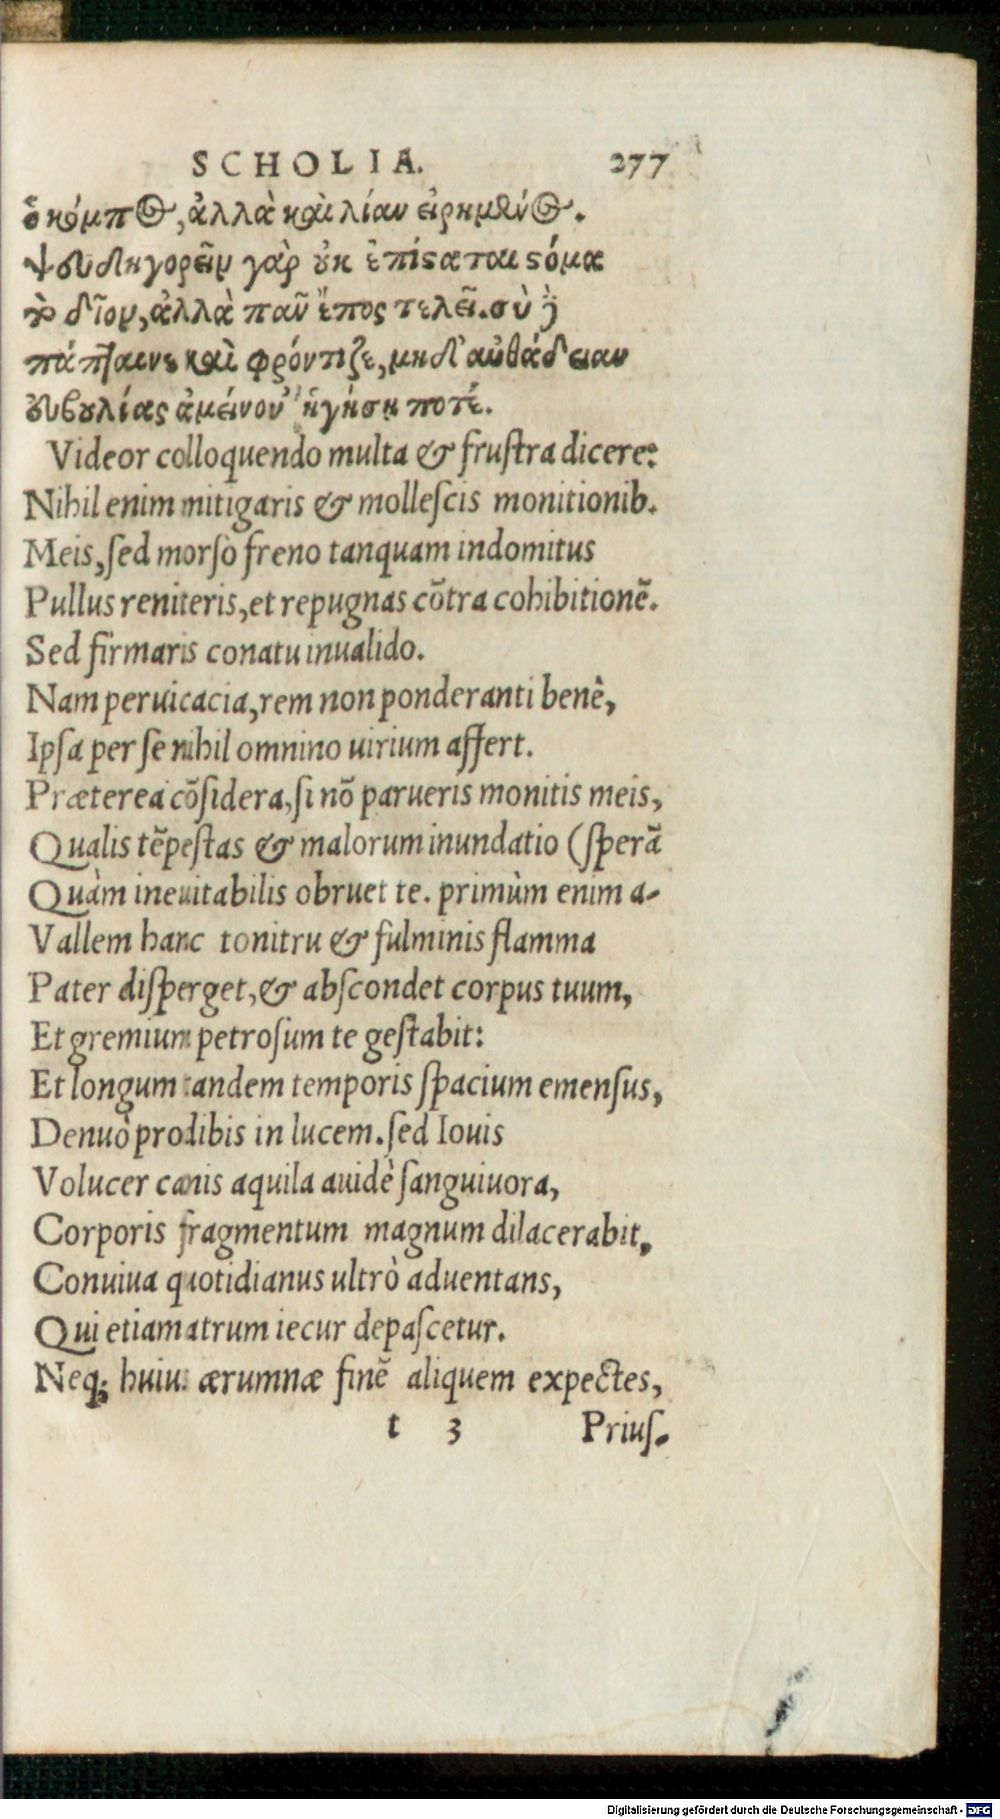 SCHOLIA. 277
ὁ κόμπος, ἀλλὰ καὶ λίαν εἰρημένος.
ψευδηγορεῖν γὰρ οὐκ ἐπίσταται στόμα
τὸ δῖον, ἀλλὰ πᾶν ἔπος τελεῖ. σὺ δὲ
πάπταινε καὶ φρόντιζε, μηδ' αὐθάδειαν
εὐβουλίας ἀμείνον' ἡγήσῃ ποτέ.
Videor colloquendo multa & frustra dicere:
Nihil enim mitigaris & mollescis monitionib.
Meis, sed morso freno tanquam indomitus
Pullus reniteris, et repugnas cōtra cohibitionē.
Sed firmaris conatu inualido.
Nam peruicacia, rem non ponderanti benè,
Ipsa per se nihil omnino uirium affert.
Præterea cōsidera, si nō parueris monitis meis,
Qualis tēpestas & malorum inundatio (sperā
Quàm ineuitabilis obruet te. primùm enim a-
Vallem hanc tonitru & fulminis flamma
Pater disperget, & abscondet corpus tuum,
Et gremium petrosum te gestabit:
Et longum tandem temporis spacium emensus,
Denuò prodibis in lucem. sed Iouis
Volucer canis aquila auidè sanguiuora,
Corporis fragmentum magnum dilacerabit,
Conuiua quotidianus ultrò aduentans,
Qui etiam atrum iecur depascetur.
Neq; huius ærumnæ finē aliquem expectes,
t 3 Prius-
Digitalisierung gefördert durch die Deutsche Forschungsgemeinschaft - DFG